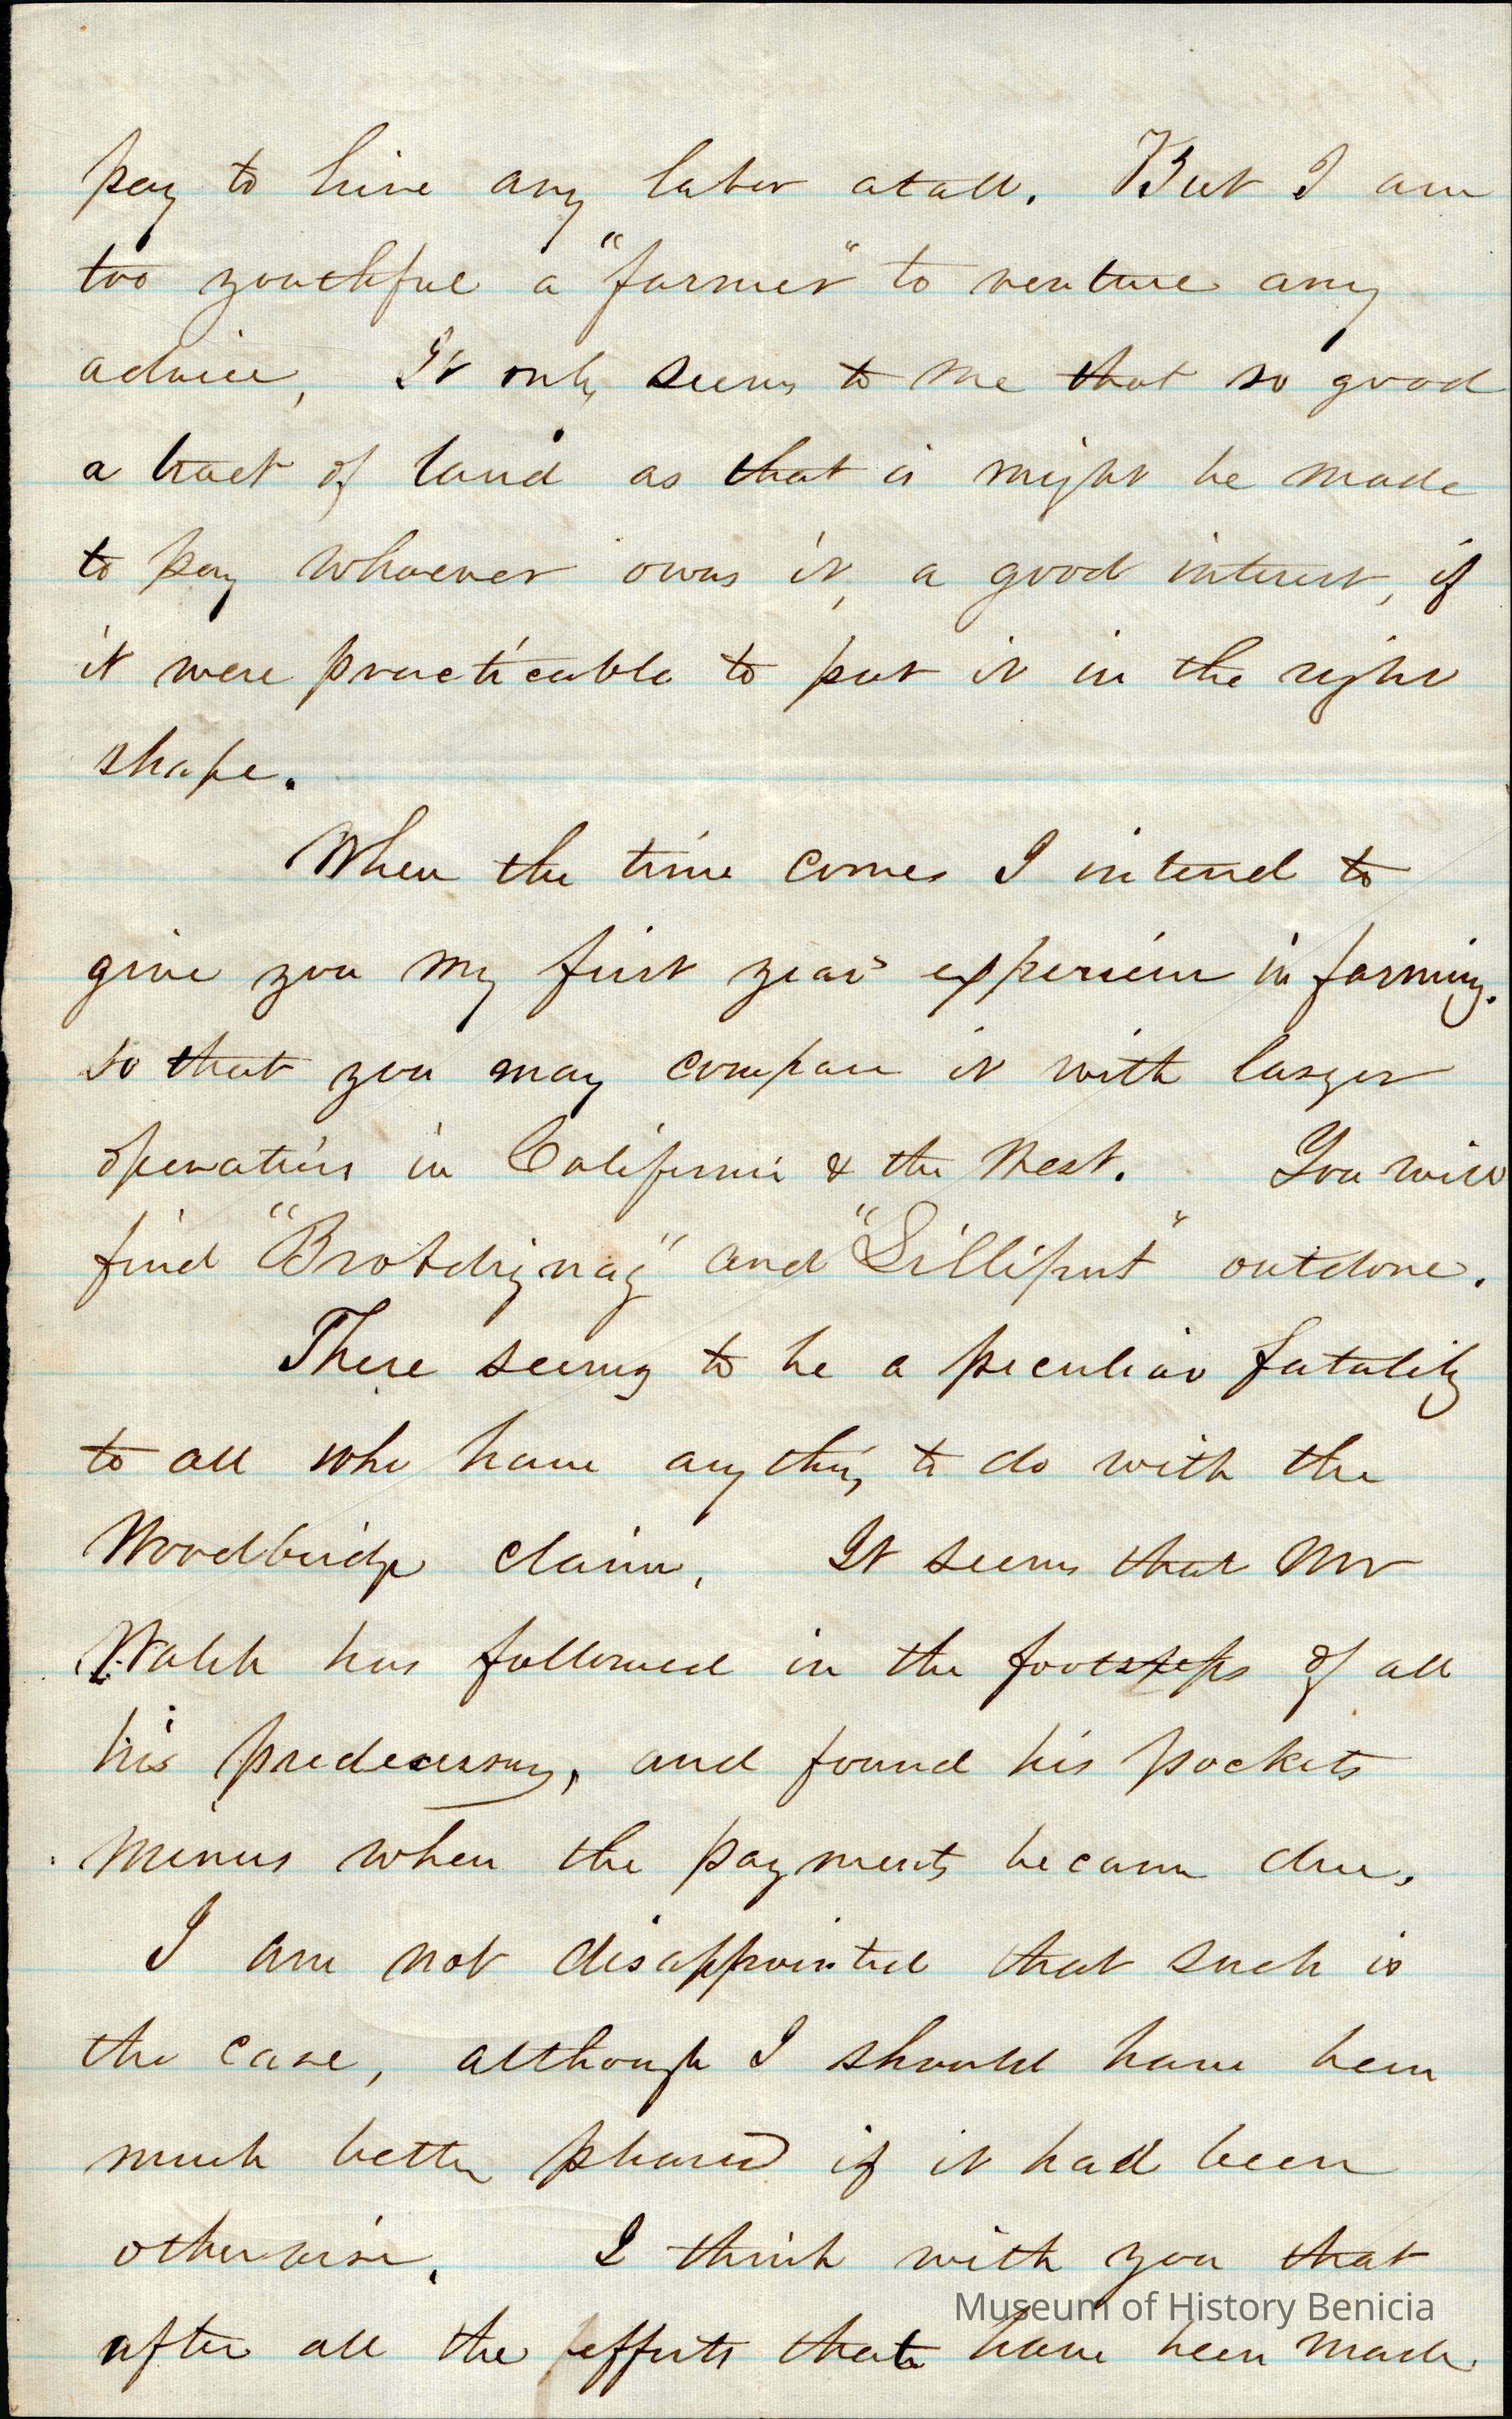 pay to hire any labor atall. But I am
too youthful a "farmer" to venture any
advice, It only seems to me that so good
a tract of land as that is might be made
to pay whoever owns it, a good interest, if
it were practicable to put it in the right
shape.
When the time comes I intend to
give you my first years experience in farming.
so that you may compare it with larger
operations in California & the West. You will
find "Brobdignag" and "Lilliput" outdone.
There seems to be a peculiar fatality
to all who have anything to do with the
Woodbridge claim. It seems that Mr
Walsh has followed in the footsteps of all
his predecessors, and found his pockets
minus when the payments became due.
I am not disappointed that such is
the case, although I should have been
much better pleased if it had been
otherwise. I think with you that
Museum of History Benicia
after all the efforts that have been made